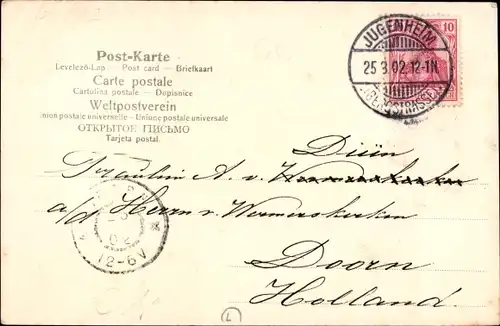 Post-Karte
Levelező-Lap — Post card — Briefkaart
Carte postale
Cartolina postale — Dopisnice
Weltpostverein
nion postale universelle - Unione postale universale
ОТКРЫТОЕ ПИСЬМО
Tarjeta postal.
10
JUGENHEIM
25 3 02 12-1N.
(BERGSTRASSE)
Fräulein A. v.
a/d Herrn v. Wermerskerken
Doorn
Holland.
02
12-6V
L